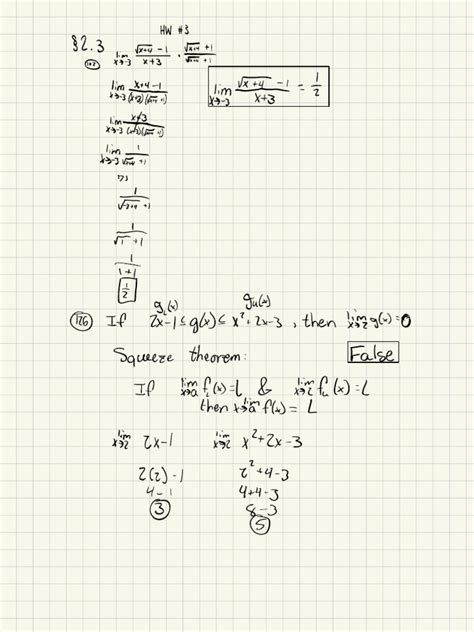 HW #3
§2.3
lim x→-3 (√(x+4) - 1)/(x+3) · (√(x+4) + 1)/(√(x+4) + 1)
lim x→-3 (x+4-1)/((x+3)(√(x+4) +1))
lim x→-3 (√(x+4) - 1)/(x+3) = 1/2
lim x→-3 (x+3)/((x+3)(√(x+4) +1))
lim x→-3 1/(√(x+4) +1)
1/(√(-3+4) +1)
1/(√1 +1)
1/(1+1)
1/2
g_L(x) g_u(x)
126 If 2x-1 ≤ g(x) ≤ x²+2x-3, then lim x→2 g(x)=0
Squeeze theorem: False
If lim x→a f_L(x)=L & lim x→a f_u(x)=L
then lim x→a f(x)=L
lim x→2 2x-1 lim x→2 x²+2x-3
2(2)-1 2²+4-3
4-1 4+4-3
3 8-3
5